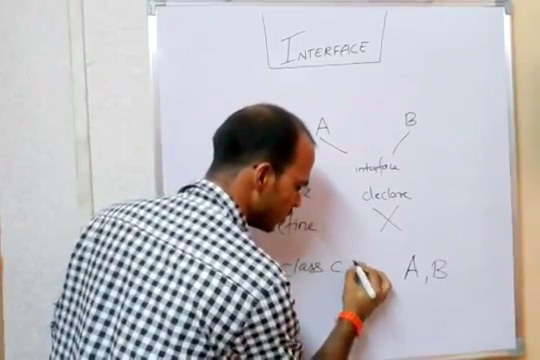 INTERFACE
A B
interface
declare
class C A, B